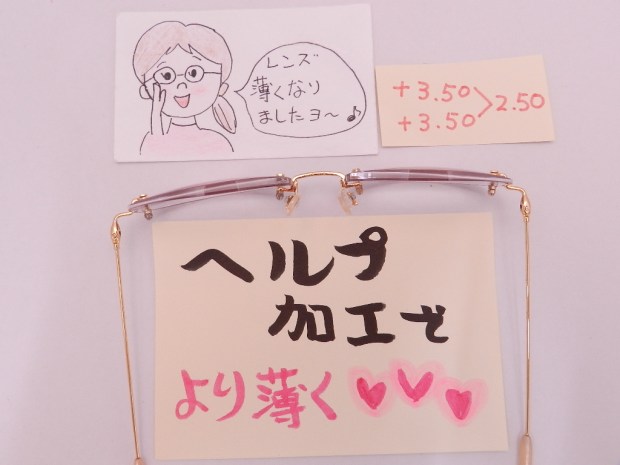 レンズ
薄くなり
ましたヨ〜♪
+3.50
+3.50>2.50
ヘルプ
加工で
より薄く♥♥♥